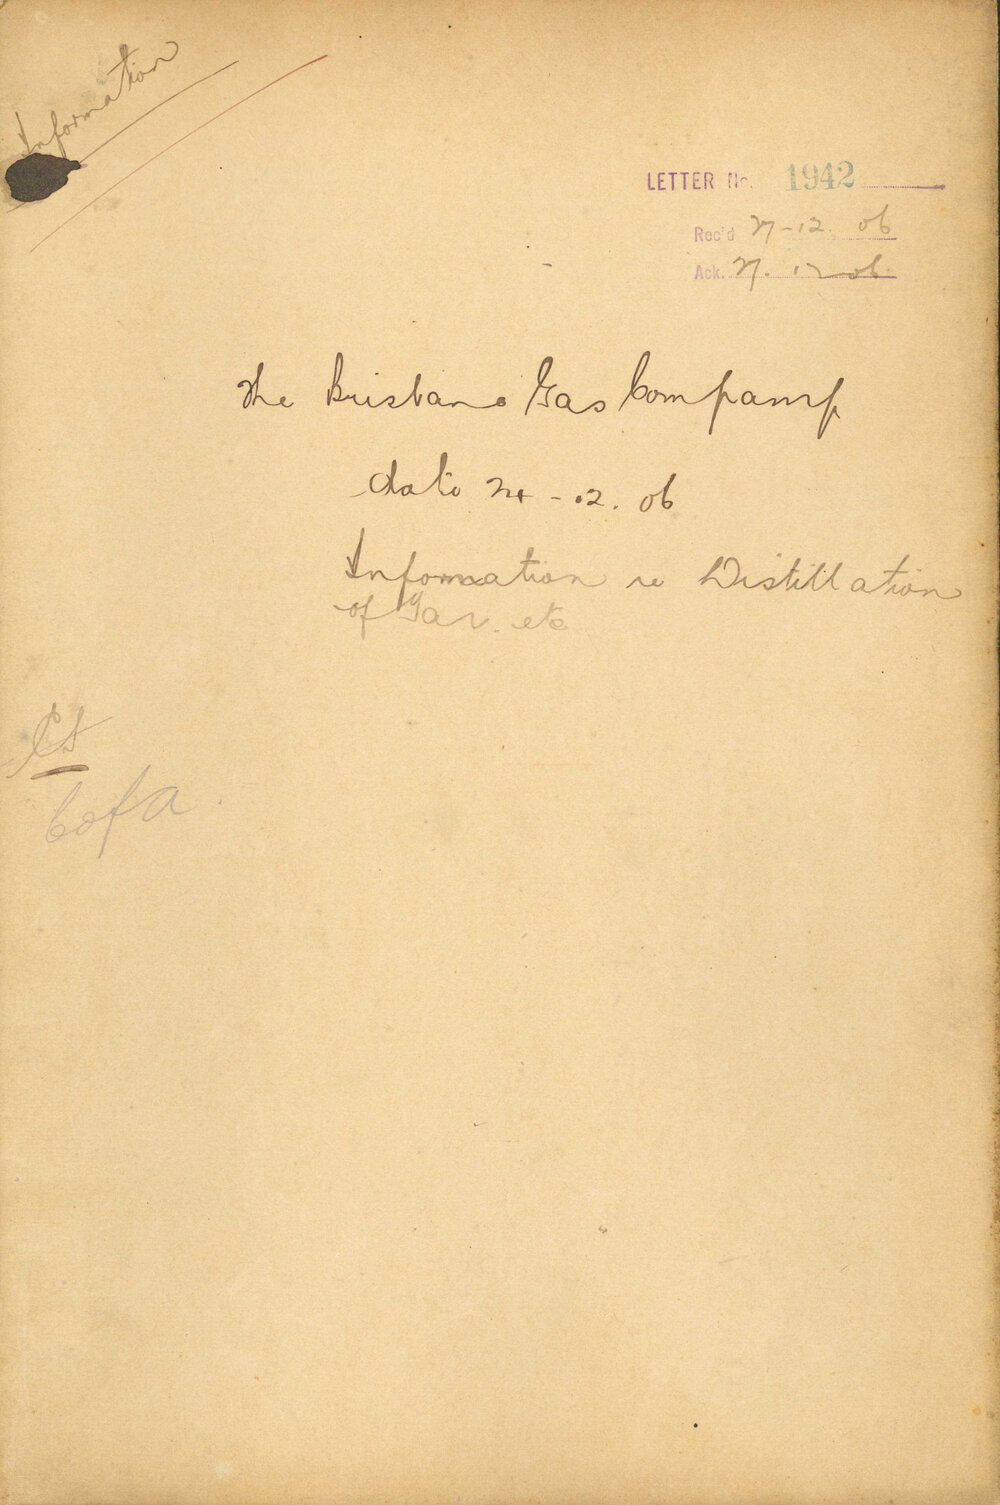 Information
LETTER No. 1942
Rec'd 27-12. 06
Ack. 27. 12 06
The Brisbane Gas Company
date 24-12. 06
Information re Distillation
of Tar. etc
C of A.